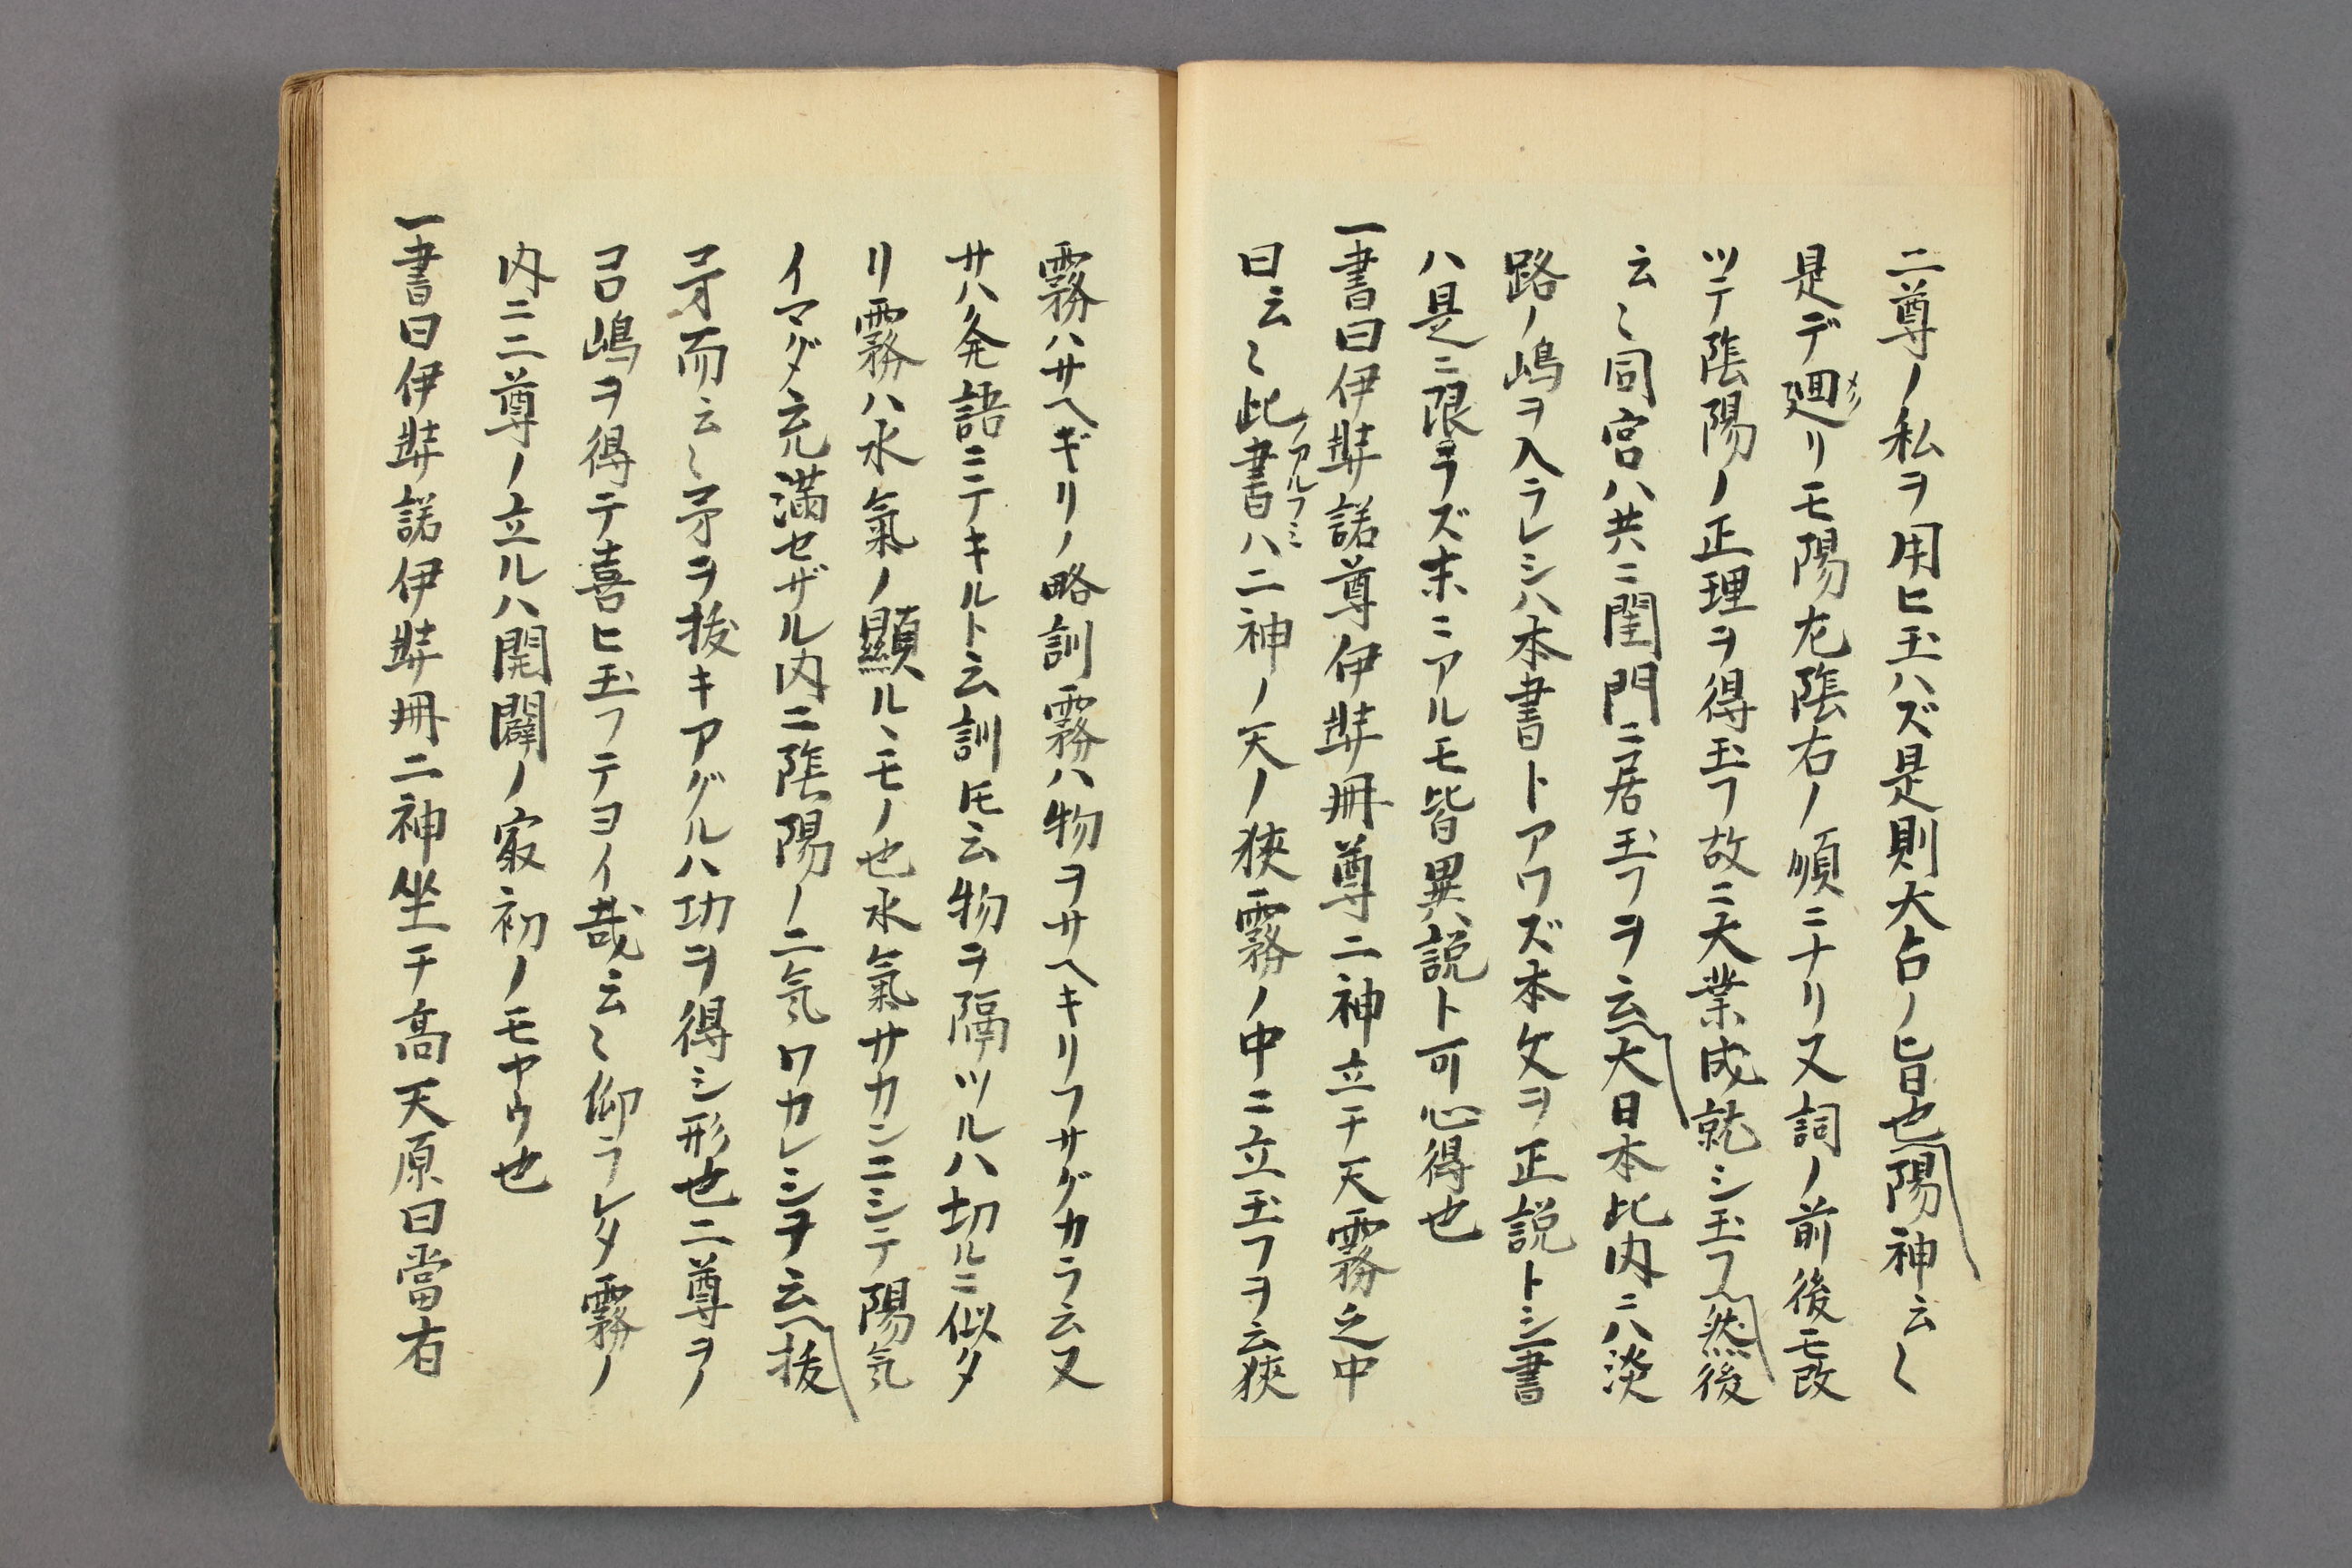 二尊ノ私ヲ用ヒ玉ハズ是則大占ノ旨也陽神云〻
是デ廻リモ陽左陰右ノ順ニナリ又詞ノ前後モ改
ツテ陰陽ノ正理ヲ得玉フ故ニ大業成就シ玉フ然後
云〻同宮ハ共ニ閨門ニ居玉フヲ云大日本此内ニハ淡
路ノ嶋ヲ入ラレシハ本書トアワズ本文ヲ正説トシ書
ハ是ニ限ラズ末ニアルモ皆異説ト可心得也
一書曰伊弉諾尊伊弉冊尊二神立于天霧之中
曰云〻此書ハ二神ノ天ノ狹霧ノ中ニ立玉フヲ云狹
アルフミ
霧ハサヘギリノ略訓霧ハ物ヲサヘキリフサグカラ云又
サハ発語ニテキルト云訓ﾄﾓ云物ヲ隔ツルハ切ルニ似タ
リ霧ハ水氣ノ顯ルヽモノ也水氣サカンニシテ陽気
イマダ充満セザル内ニ陰陽ノ二気ワカレシヲ云抜
矛而云〻矛ヲ抜キアグルハ功ヲ得シ形也二尊ヲノ
コロ嶋ヲ得テ喜ヒ玉フテヨイ哉云〻仰ラレタ霧ノ
内ニ二尊ノ立ルハ開闢ノ最初ノモヤウ也
一書曰伊弉諾伊弉冊二神坐于高天原曰當有